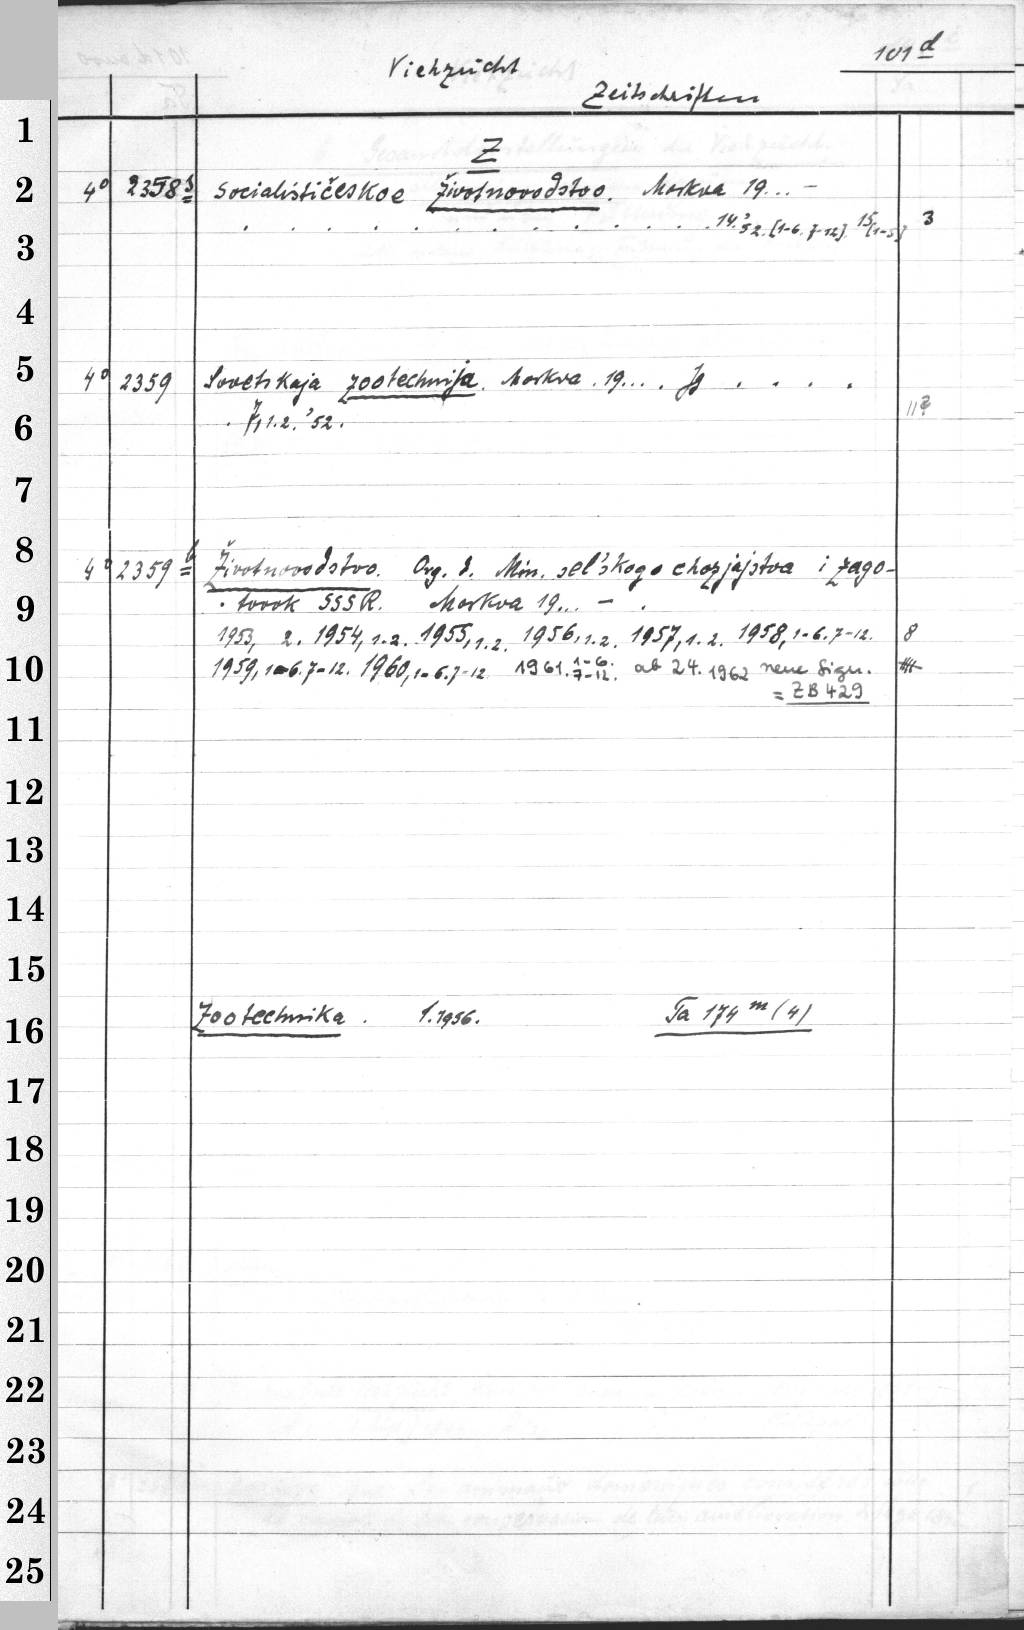 101 d
Viehzucht
Zeitschriften
Z
4° 2358 b Socialističeskoe Životnovodstvo. Moskva 19... –
14.'52. [1-6. 7-12]. 15 [1-5] 3
4° 2359 Sovetskaja zootechnija. Moskva. 19.... Jg . . . .
. 7, 1.2. '52. 11
4° 2359 b Životnovodstvo. Org. d. Min. sel'skogo chozjajstva i zago-
. tovok SSSR. Moskva 19... – .
1953, 2. 1954, 1.2. 1955, 1.2. 1956, 1.2. 1957, 1.2. 1958, 1-6. 7-12. 8
1959, 1-6. 7-12. 1960, 1-6. 7-12 1961. 1-6. 7-12. ab 24. 1962 neue Sign.
= ZB 429
Zootechnika. 1. 1956. Ta 174 m (4)
1
2
3
4
5
6
7
8
9
10
11
12
13
14
15
16
17
18
19
20
21
22
23
24
25